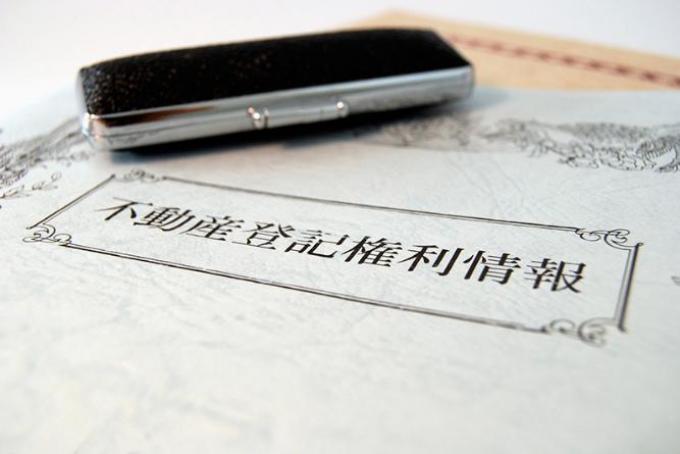 不動産登記権利情報